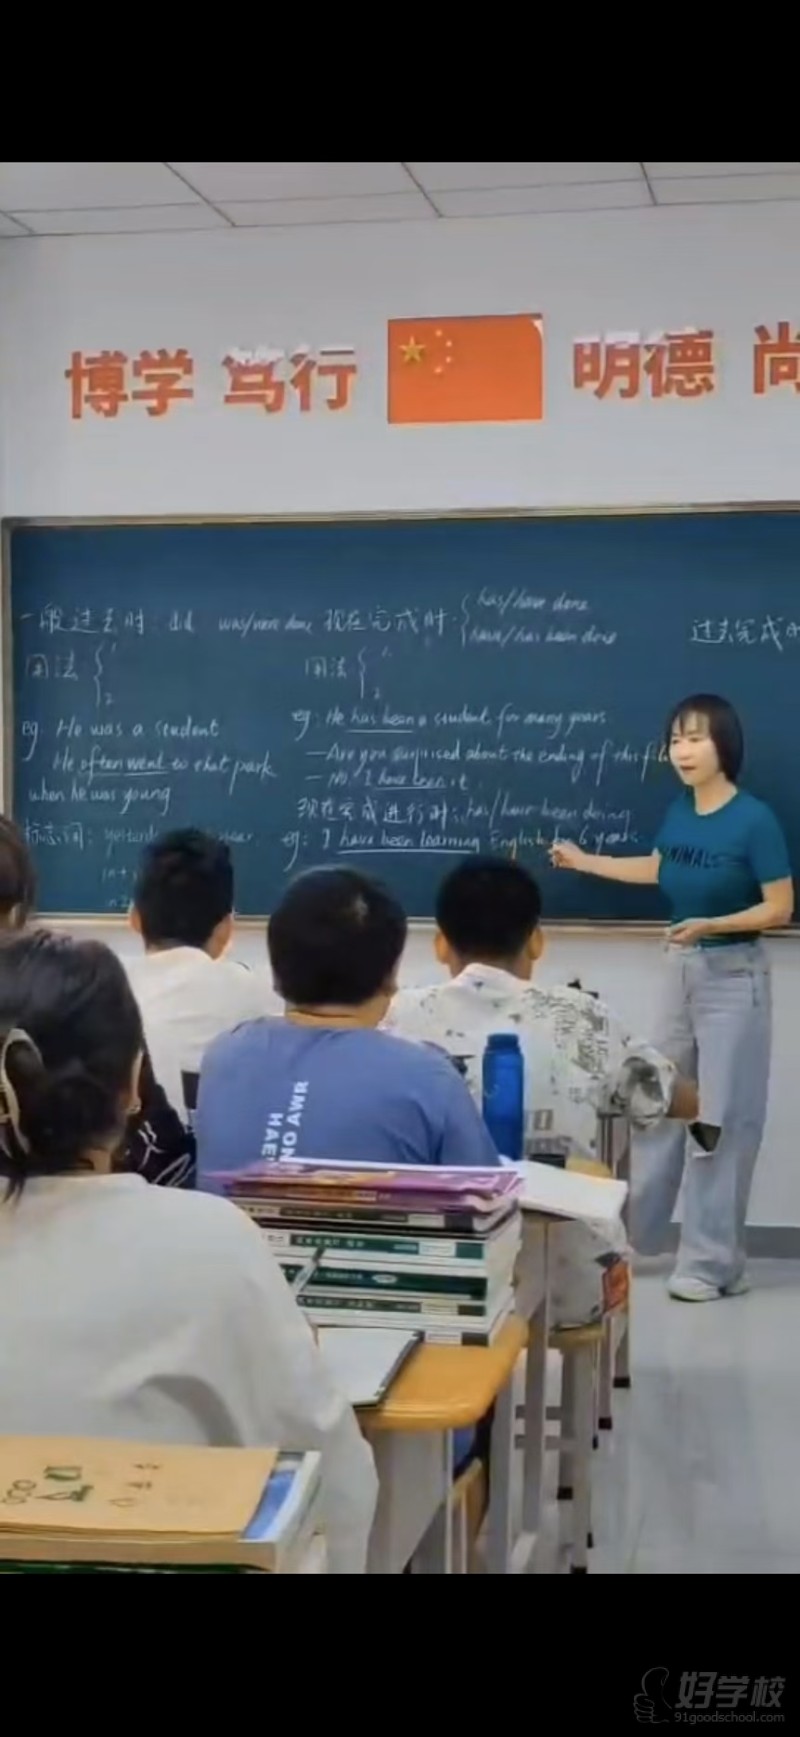 博学 笃行 明德 尚
一般过去时: did was/were done
用法 { 1.
2
eg. He was a student
He often went to that park
when he was young
标志词: yesterday
现在完成时: { has/have done
have/has been done
用法 { 1.
2
eg: He has been a student for many years
— Are you surprised about the ending of this fil
— No. I have seen it.
现在完成进行时: has/have been doing
eg: I have been learning English for 6 years.
过去完成时
ANIMALS
好学校
91goodschool.com